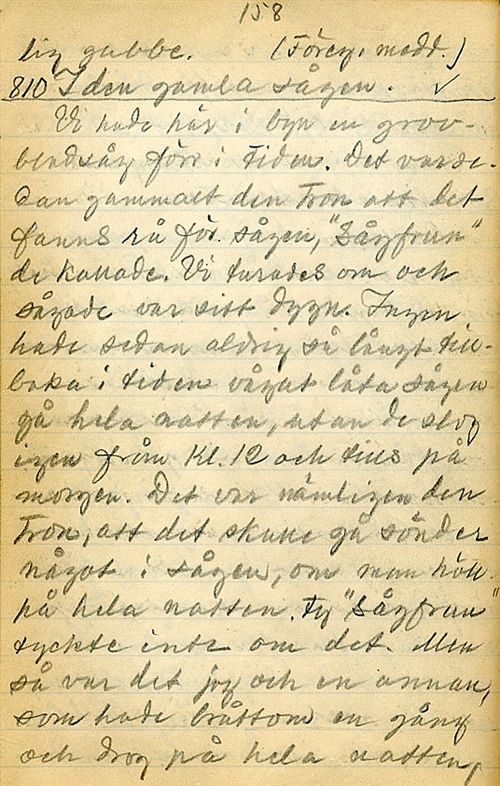 158
lig gubbe. (Föreg. medd.)
810 I den gamla sågen. ✓
Vi hade här i byn en grov-
bladsåg förr i tiden. Det var se-
dan gammalt den tron att det
fanns rå för sågen, "Sågfrun"
de kallade. Vi turades om och
sågade var sitt dygn. Ingen
hade sedan aldrig så långt till-
baka i tiden vågat låta sågen
gå hela natten, utan de slog
igen från kl. 12 och tills på
morgon. Det var nämligen den
tron, att det skulle gå sönder
något i sågen, om man höll
på hela natten. Ty "Sågfrun"
tyckte inte om det. Men
så var det jag och en annan,
som hade bråttom en gång
och drog på hela natten,